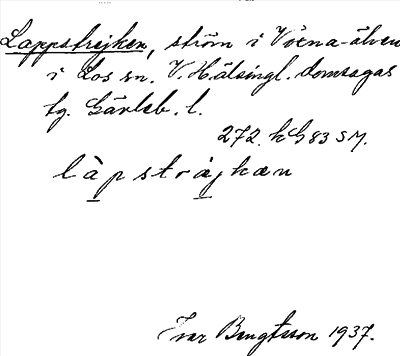 Lappstrejken, ström i Voxna-älven
i Los sn. V. Hälsingl. domsagas
tg. Gävleb. l.
272. h G 83 SM.
låpstrajkæn
Ivar Bengtsson 1937.